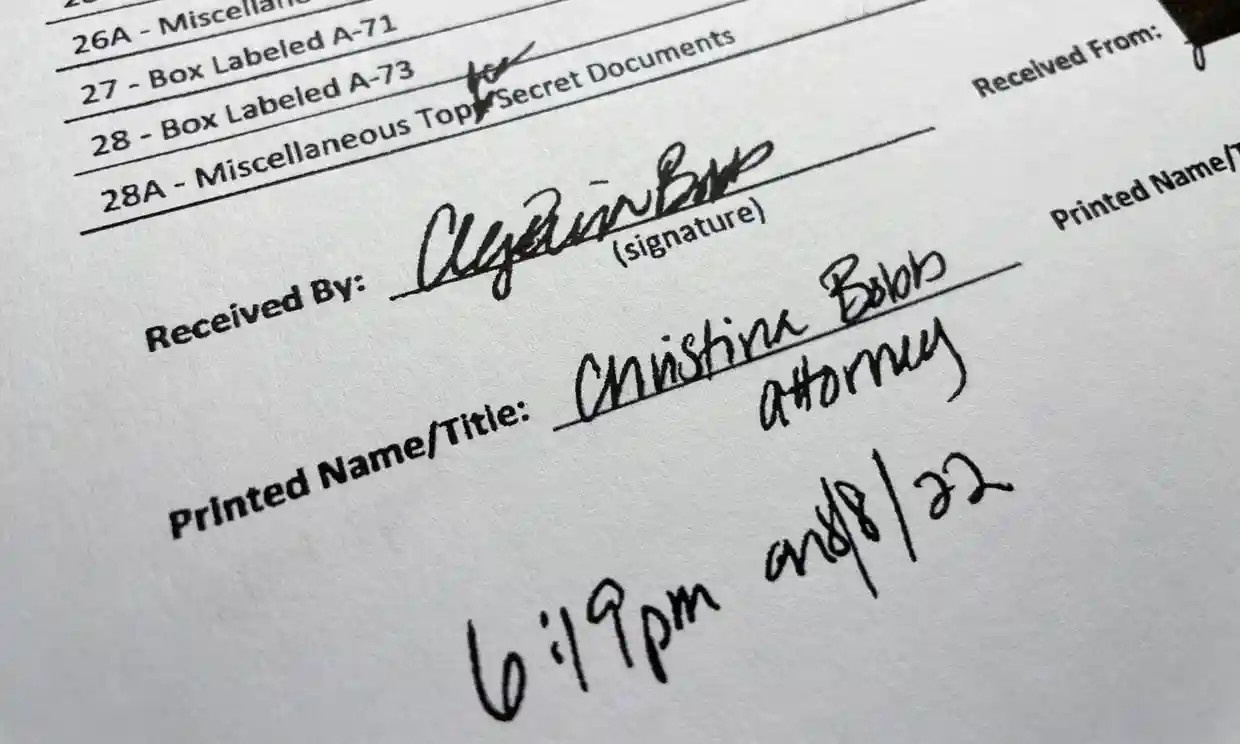 26A - Miscellan
27 - Box Labeled A-71
28 - Box Labeled A-73
28A - Miscellaneous Top Secret Documents
Received From:
Received By:
(signature)
Printed Name/T
Printed Name/Title: Christina Bobb
attorney
6:19pm on 8/8/22